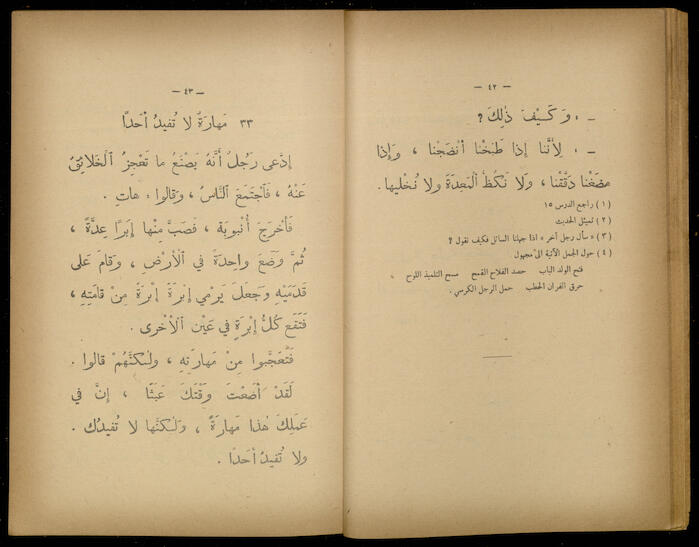 — ٤٢ —
— : وَكَيْفَ ذٰلِكَ ؟
— : لِأَنَّنا إِذا طَبَخْنا أَنْضَجْنا ، وَإِذا
مضَغْنا دَقَّقْنا ، وَلا نَكُظُّ ٱلْمَعِدَةَ ولا نُخْليها .
(١) راجع الدرس ١٥
(٢) تمثيل الحديث
(٣) « سأل رجل آخر » اذا جهلنا السائل فكيف نقول ؟
(٤) حول الجمل الآتية الى مجهول
فتح الولد الباب حصد الفلاح القمح مسح التلميذ اللوح
حرق الفران الحطب حمل الرجل الكرسي .
— ٤٣ —
٣٣ مَهارَةٌ لا تُفيدُ أَحَدًا
إِدَّعى رَجُلٌ أَنَّهُ يَصْنَعُ ما تَعْجِزُ ٱلْخَلائِقُ
عَنْهُ ، فَٱجْتَمَعَ ٱلنَّاسُ ، وَقالوا : هاتِ .
فَأَخْرَجَ أُنْبوبَةً ، فَصَبَّ مِنْها إِبَرًا عِدَّةً ،
ثُمَّ وَضَعَ واحِدَةً في ٱلْأَرْضِ ، وَقامَ عَلى
قَدَمَيْهِ وَجَعَلَ يَرْمي إِبْرَةً إِبْرَةً مِنْ قامَتِهِ ،
فَتَقَع كُلُّ إِبْرَةٍ في عَيْنِ ٱلْأُخْرى .
فَتَعَجَّبوا مِنْ مَهارَتِهِ ، ولٰكِنَّهُمْ قالوا .
لَقَدْ أَضَعْتَ وَقْتَكَ عَبَثًا ، إِنَّ في
عَمَلِكَ هٰذا مَهارَةً ، وَلٰكِنَّها لا تُفيدُك .
ولا تُفيدُ أَحَدًا .